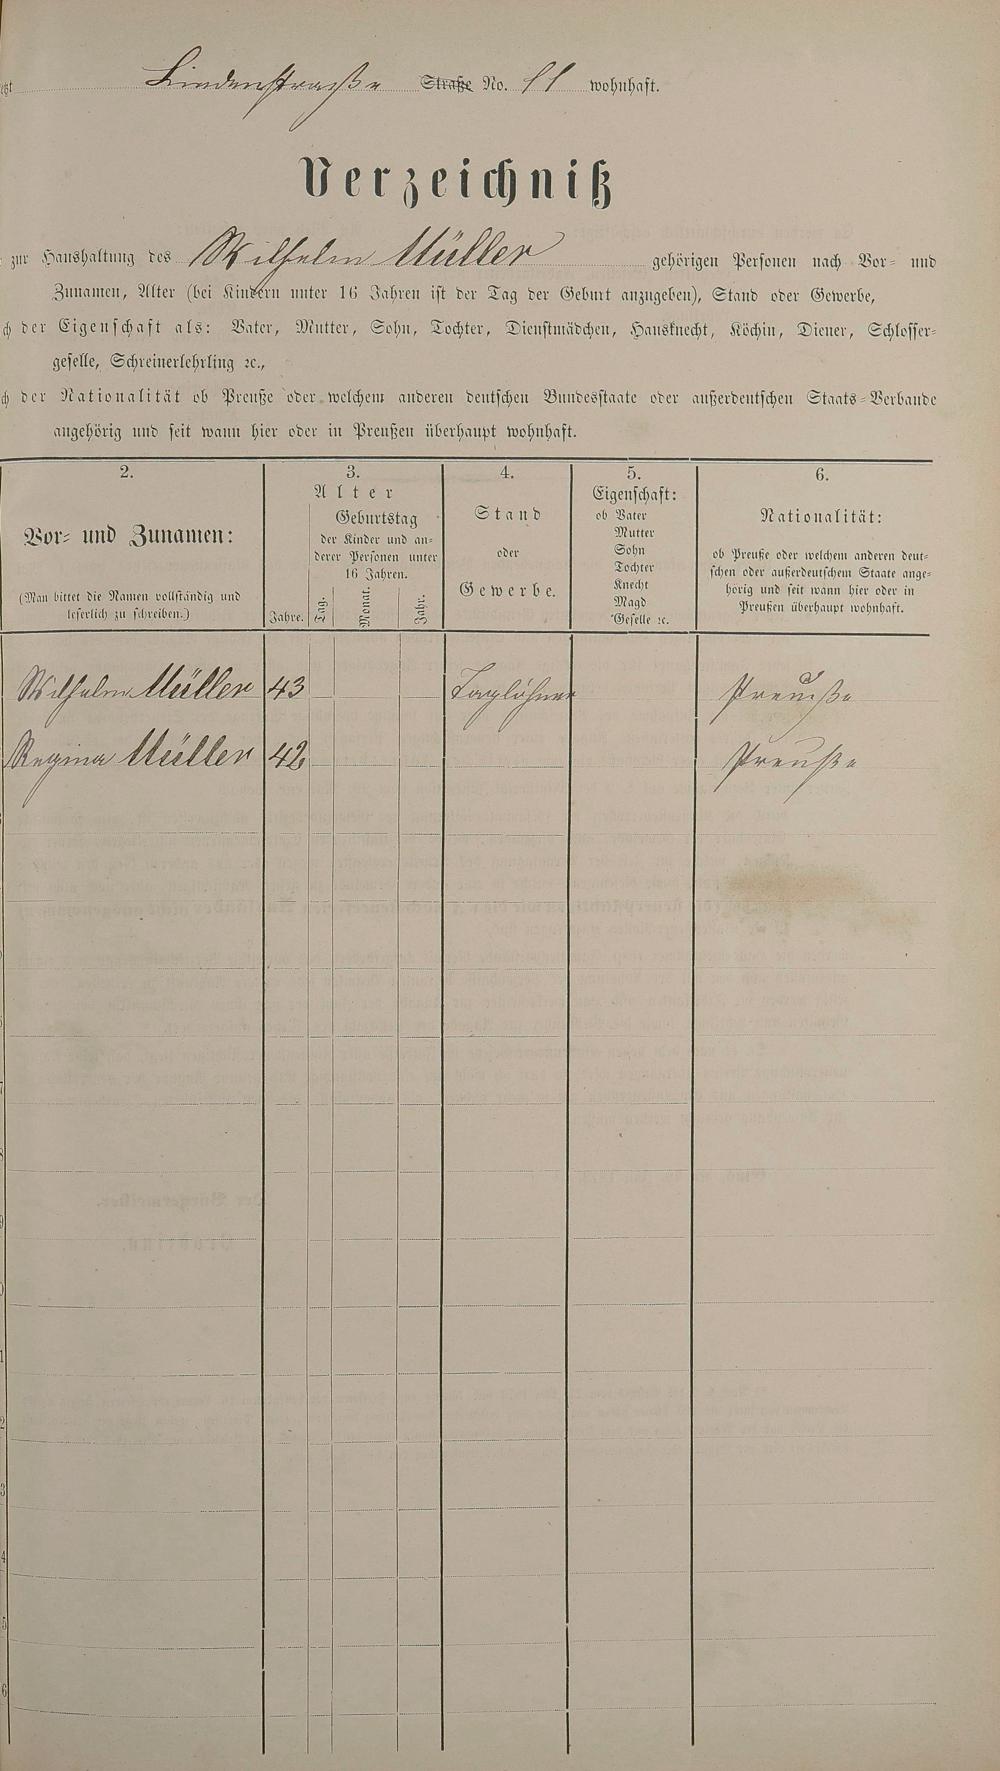 Lindenstraße Straße No. 11 wohnhaft.
Verzeichniß
zur Haushaltung des Wilhelm Müller gehörigen Personen nach Vor- und
Zunamen, Alter (bei Kindern unter 16 Jahren ist der Tag der Geburt anzugeben), Stand oder Gewerbe,
der Eigenschaft als: Vater, Mutter, Sohn, Tochter, Dienstmädchen, Hausknecht, Köchin, Diener, Schlosser-
geselle, Schreinerlehrling ꝛc.,
der Nationalität ob Preuße oder welchem anderen deutschen Bundesstaate oder außerdeutschen Staats-Verbande
angehörig und seit wann hier oder in Preußen überhaupt wohnhaft.
2.
Vor- und Zunamen:
(Man bittet die Namen vollständig und
leserlich zu schreiben.)
3.
Alter
Jahre.
Geburtstag
der Kinder und an-
derer Personen unter
16 Jahren.
Tag.
Monat.
Jahr.
4.
Stand
oder
Gewerbe.
5.
Eigenschaft:
ob Vater
Mutter
Sohn
Tochter
Knecht
Magd
Geselle ꝛc.
6.
Nationalität:
ob Preuße oder welchem anderen deut-
schen oder außerdeutschem Staate ange-
hörig und seit wann hier oder in
Preußen überhaupt wohnhaft.
Wilhelm Müller 43 Taglöhner Preuße
Regina Müller 42 Preuße